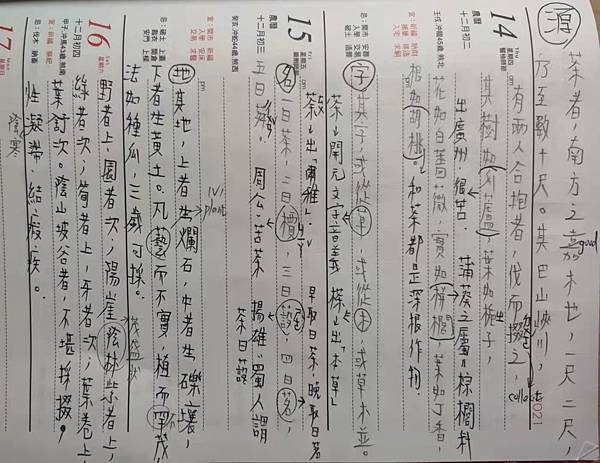 源 茶者，南方之嘉木也，一尺二尺，
good
乃至數十尺。其巴山峽川，
有兩人合抱者，伐而掇之，
collect
2021
其樹如瓜蘆，葉如梔子，
出廣州，很苦. 蒲葵之屬
花如白薔薇，實如栟櫚，葉如丁香，
根如胡桃。和茶都是深根作物.
字 其字，或從草，或從木，或草木並。
茶→開元文字音義 搽→出「本草」
出「爾雅」. 早取曰茶，晚取曰茗
名 一曰茶，二曰檟，三曰蔎，四曰茗，
五曰荈。周公：苦茶 揚雄：蜀人謂
茶曰蔎
地 其地，上者生爛石，中者生礫壤，
(v) plant
下者生黃土。凡藝而不實，植而罕茂，
法如種瓜，三歲可採。
茂盛狀
野者上，園者次；陽崖陰林紫者上，
綠者次；筍者上，牙者次；葉卷上，
葉舒次。陰山坡谷者，不堪採掇，
性凝滯，結瘕疾。
陰寒
14
農曆
十二月初二
15
農曆
十二月初三
16
十二月初四
17